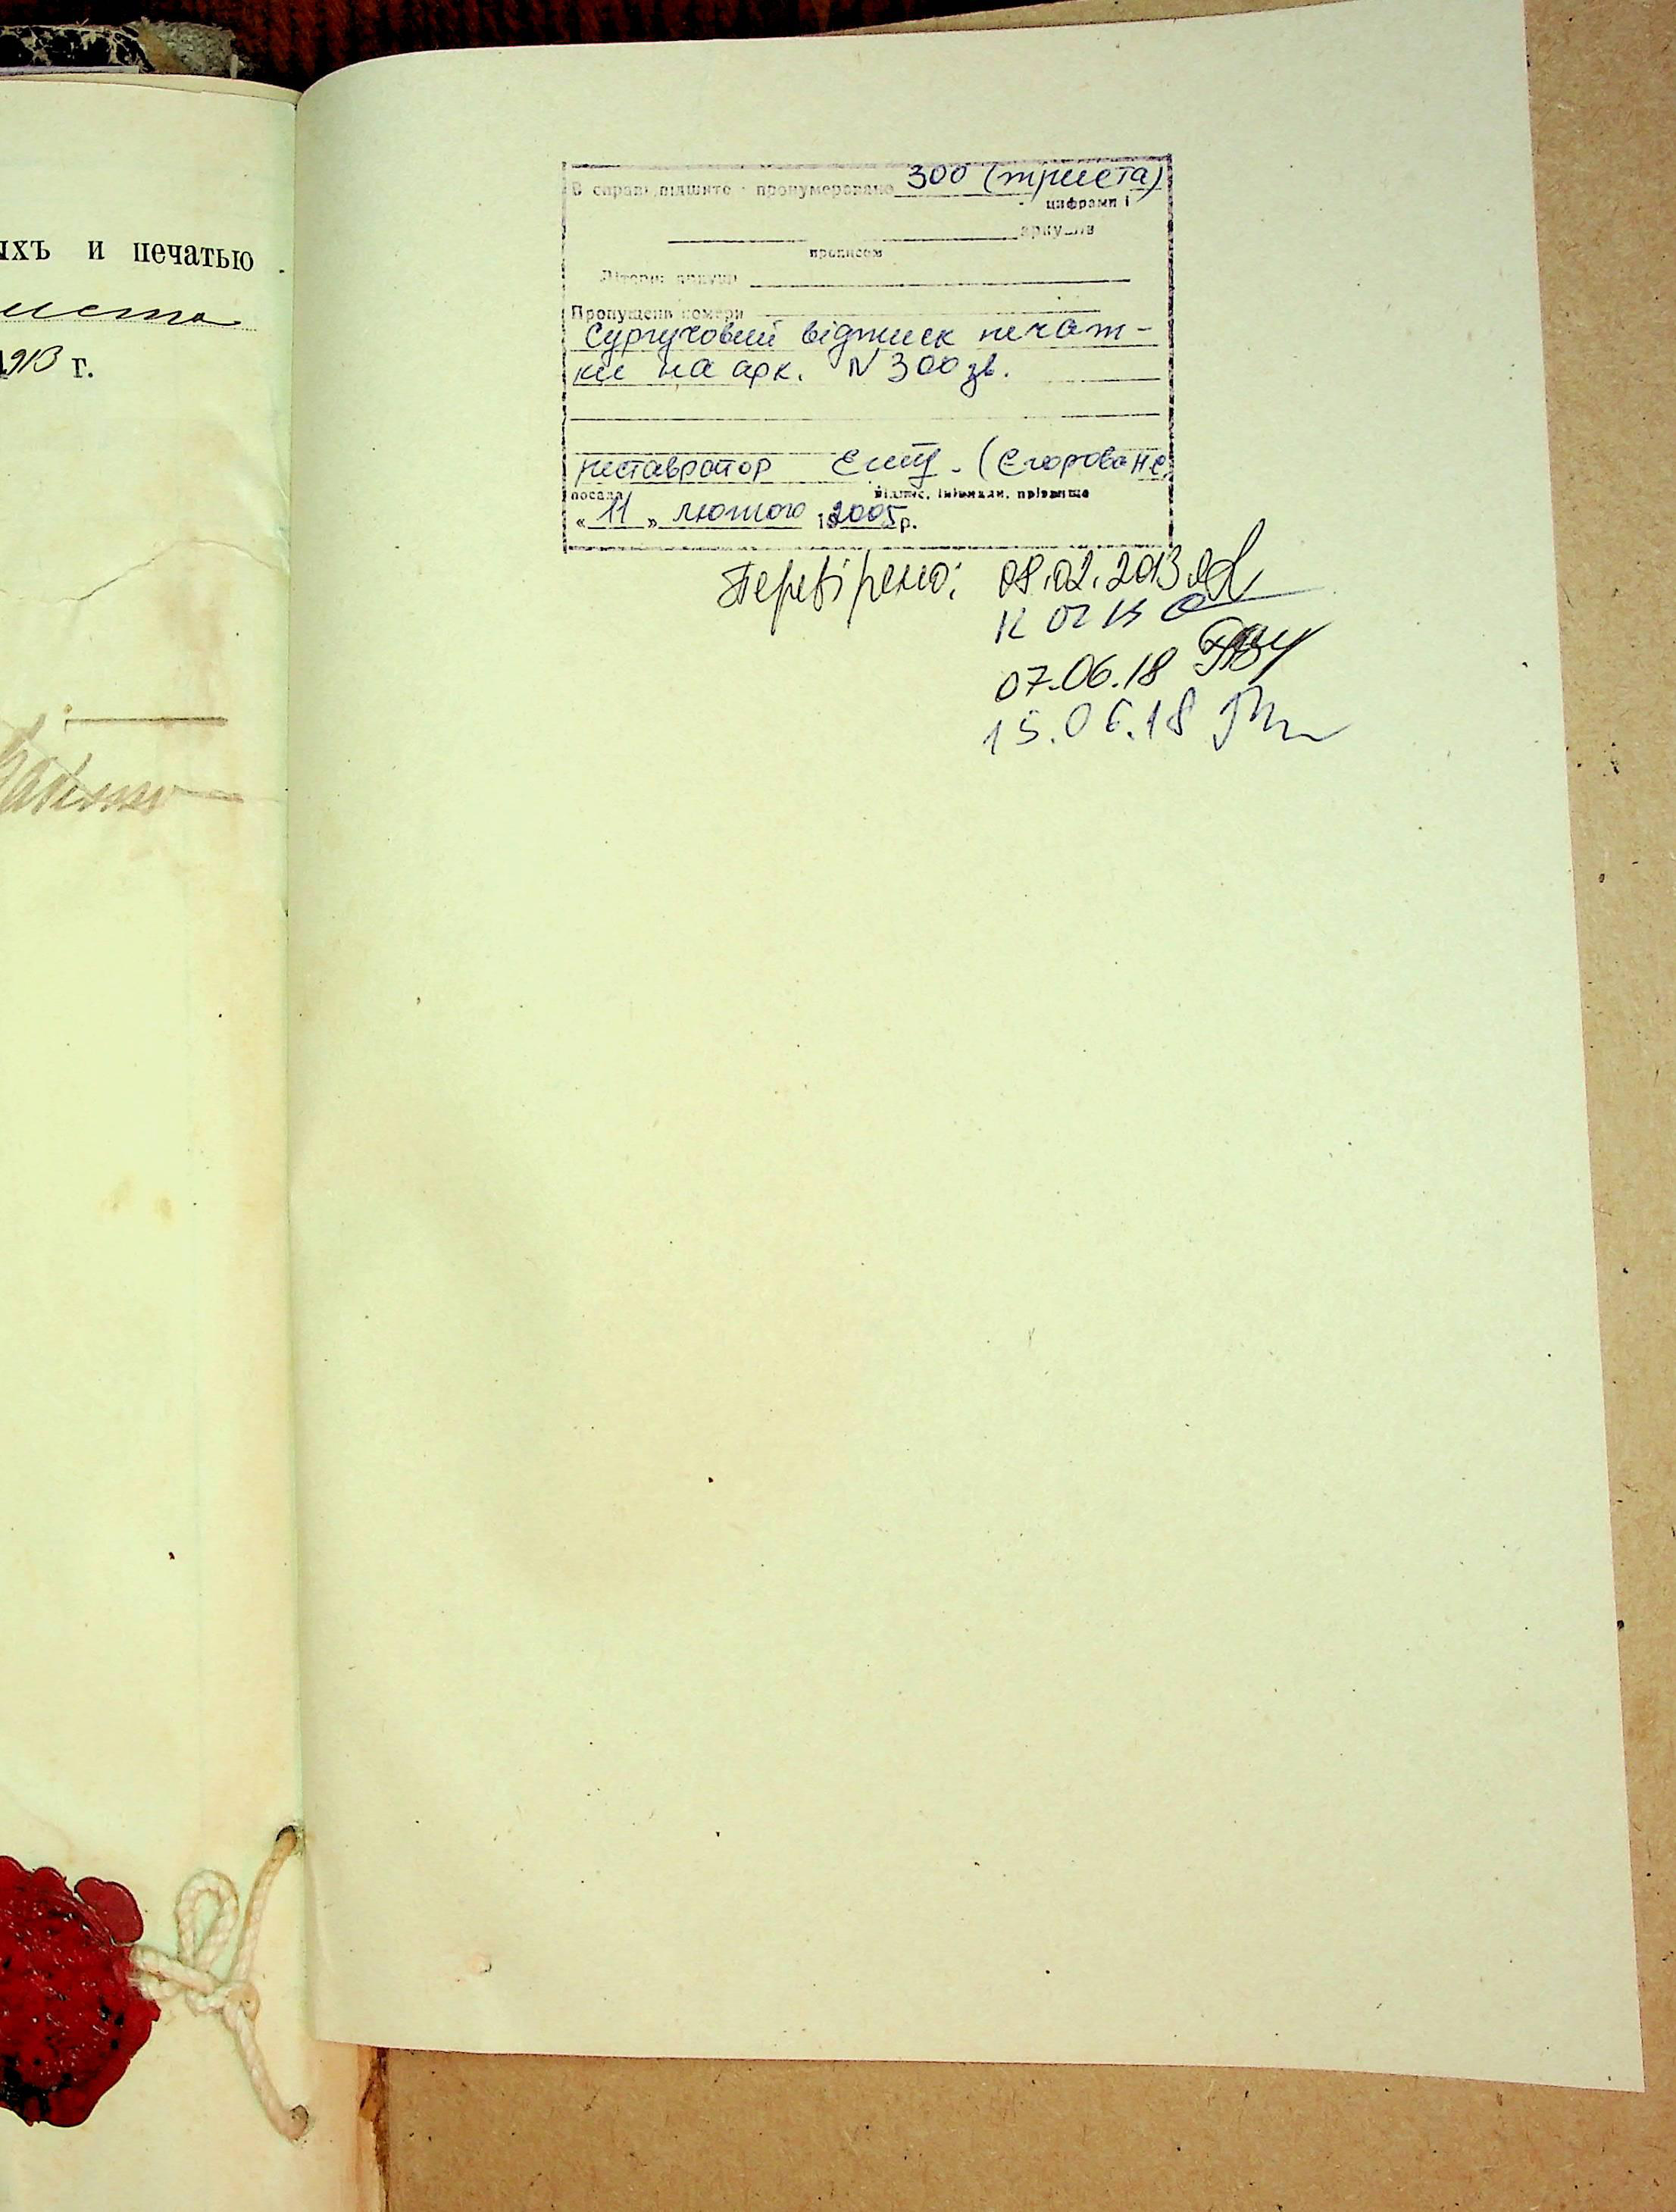 ыхъ и печатью
1913 г.
В справі підшито і пронумеровано 300 (триста)
цифрами і
аркушів
прописом
Літерні аркуші
Пропущені номери
Сургучовий відтиск печат-
ки на арк. N 300 зв.
реставратор (Єгорова Н.Є.
посада підпис, ініціали, прізвище
« 11 » лютого 2005 р.
Перевірено: 08.02.2013
07.06.18
15.06.18